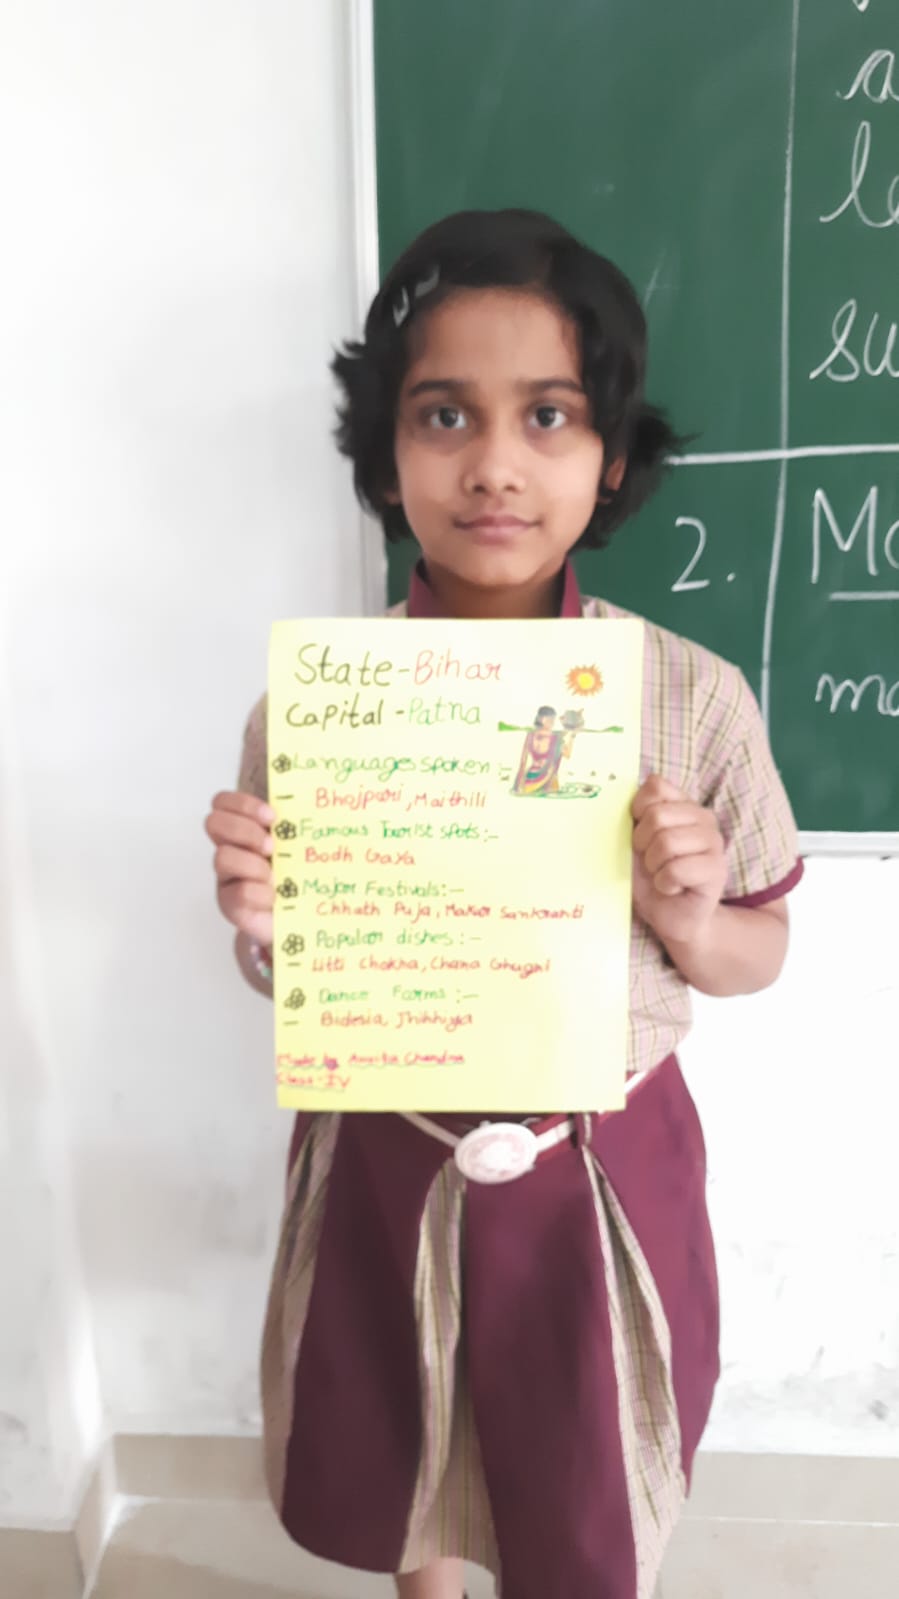 State-Bihar
Capital-Patna
Languages spoken:-
- Bhojpuri, Maithili
Famous Tourist spots:-
- Bodh Gaya
Major Festivals:-
- Chhath Puja, Makar Sankranti
Popular dishes:-
- Litti Chokha, Chana Ghugni
Dance Forms:-
- Bidesia, Jhihhiya
Made by Amrita Chandra
Class-IV
a
le
su
2. Mo
ma